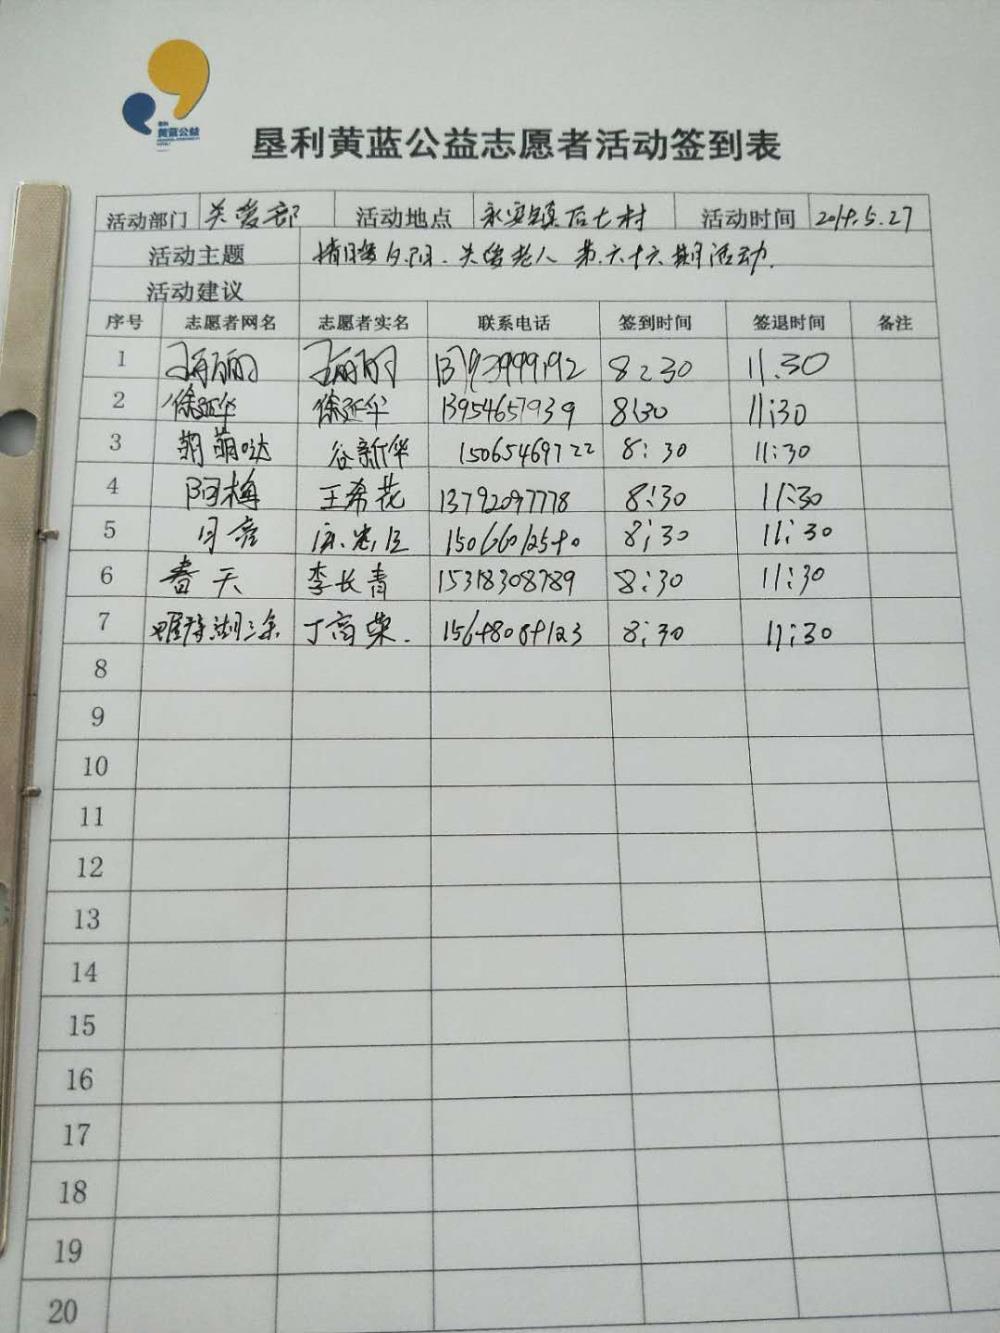 黄蓝公益
垦利黄蓝公益志愿者活动签到表
活动部门 关爱部 活动地点 永安镇后七村 活动时间 2019.5.27
活动主题 情暖夕阳.关爱老人 第六十六期活动.
活动建议
序号 志愿者网名 志愿者实名 联系电话 签到时间 签退时间 备注
1 8:30 11.30
2 徐延华 徐延华 13954657939 8:30 11:30
3 萌萌哒 谷新华 15065469722 8:30 11:30
4 阿梅 王希花 13792097778 8:30 11:30
5 月亮 8:30 11:30
6 春天 李长青 15318308789 8:30 11:30
7 丁高荣. 8:30 11:30
8
9
10
11
12
13
14
15
16
17
18
19
20